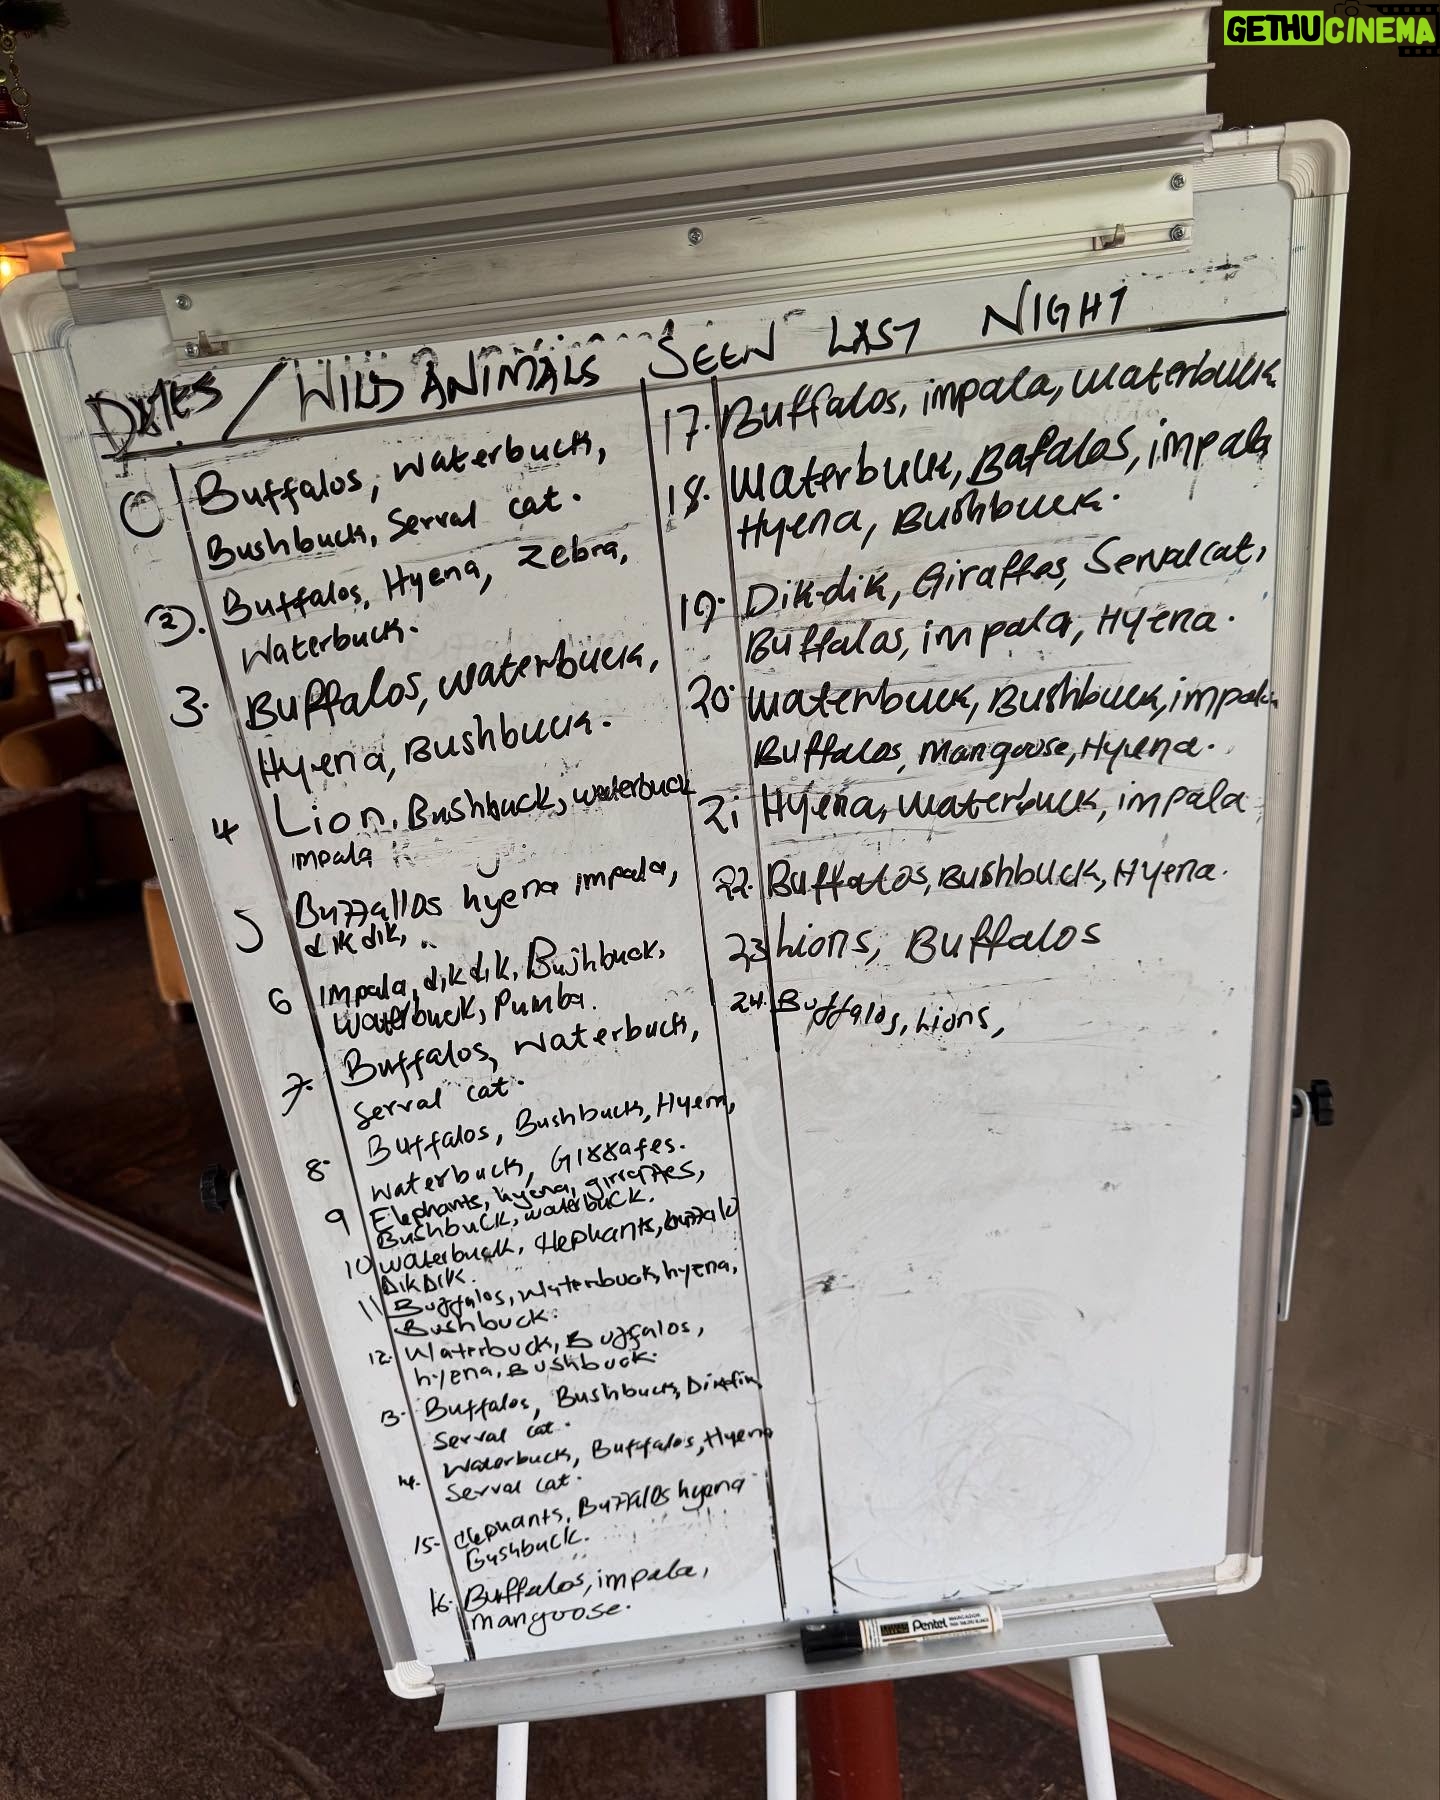 GETHUCINEMA
DATES / WILD ANIMALS SEEN LAST NIGHT
Buffalos, Waterbuck,
Bushbuck, Serval cat.
2. Buffalos, Hyena, Zebra,
Waterbuck.
3. Buffalos, waterbuck,
Hyena, Bushbuck.
4 Lion, Bushbuck, waterbuck
impala
5 Buffallos hyena impala,
dikdik,
6 Impala, dikdik, Bushbuck,
waterbuck, Pumba.
7. Buffalos, Waterbuck,
Serval cat.
8. Buffalos, Bushbuck, Hyena,
waterbuck, Girrafes.
9 Elephants, hyena, girraffes,
Bushbuck, waterbuck.
10 waterbuck, elephants, buffalo
DikDik.
11 Buffalos, waterbuck, hyena,
Bushbuck.
12. Waterbuck, Buffalos,
hyena, Bushbuck.
13. Buffalos, Bushbuck, Dikdik,
Serval cat.
14. Waterbuck, Buffalos, Hyena
Serval cat.
15. elephants, Buffalos hyena
Bushbuck.
16. Buffalos, impala,
mangoose.
17. Buffalos, impala, waterbuck
18. Waterbuck, Bafalos, impala
Hyena, Bushbuck.
19. Dik-dik, Giraffes, Serval cat,
Buffalos, impala, Hyena.
20. waterbuck, Bushbuck, impala
Buffalos, Mangoose, Hyena.
21 Hyena, waterbuck, impala
22. Buffalos, Bushbuck, Hyena.
23 Lions, Buffalos
24. Buffalos, Lions,
Pentel